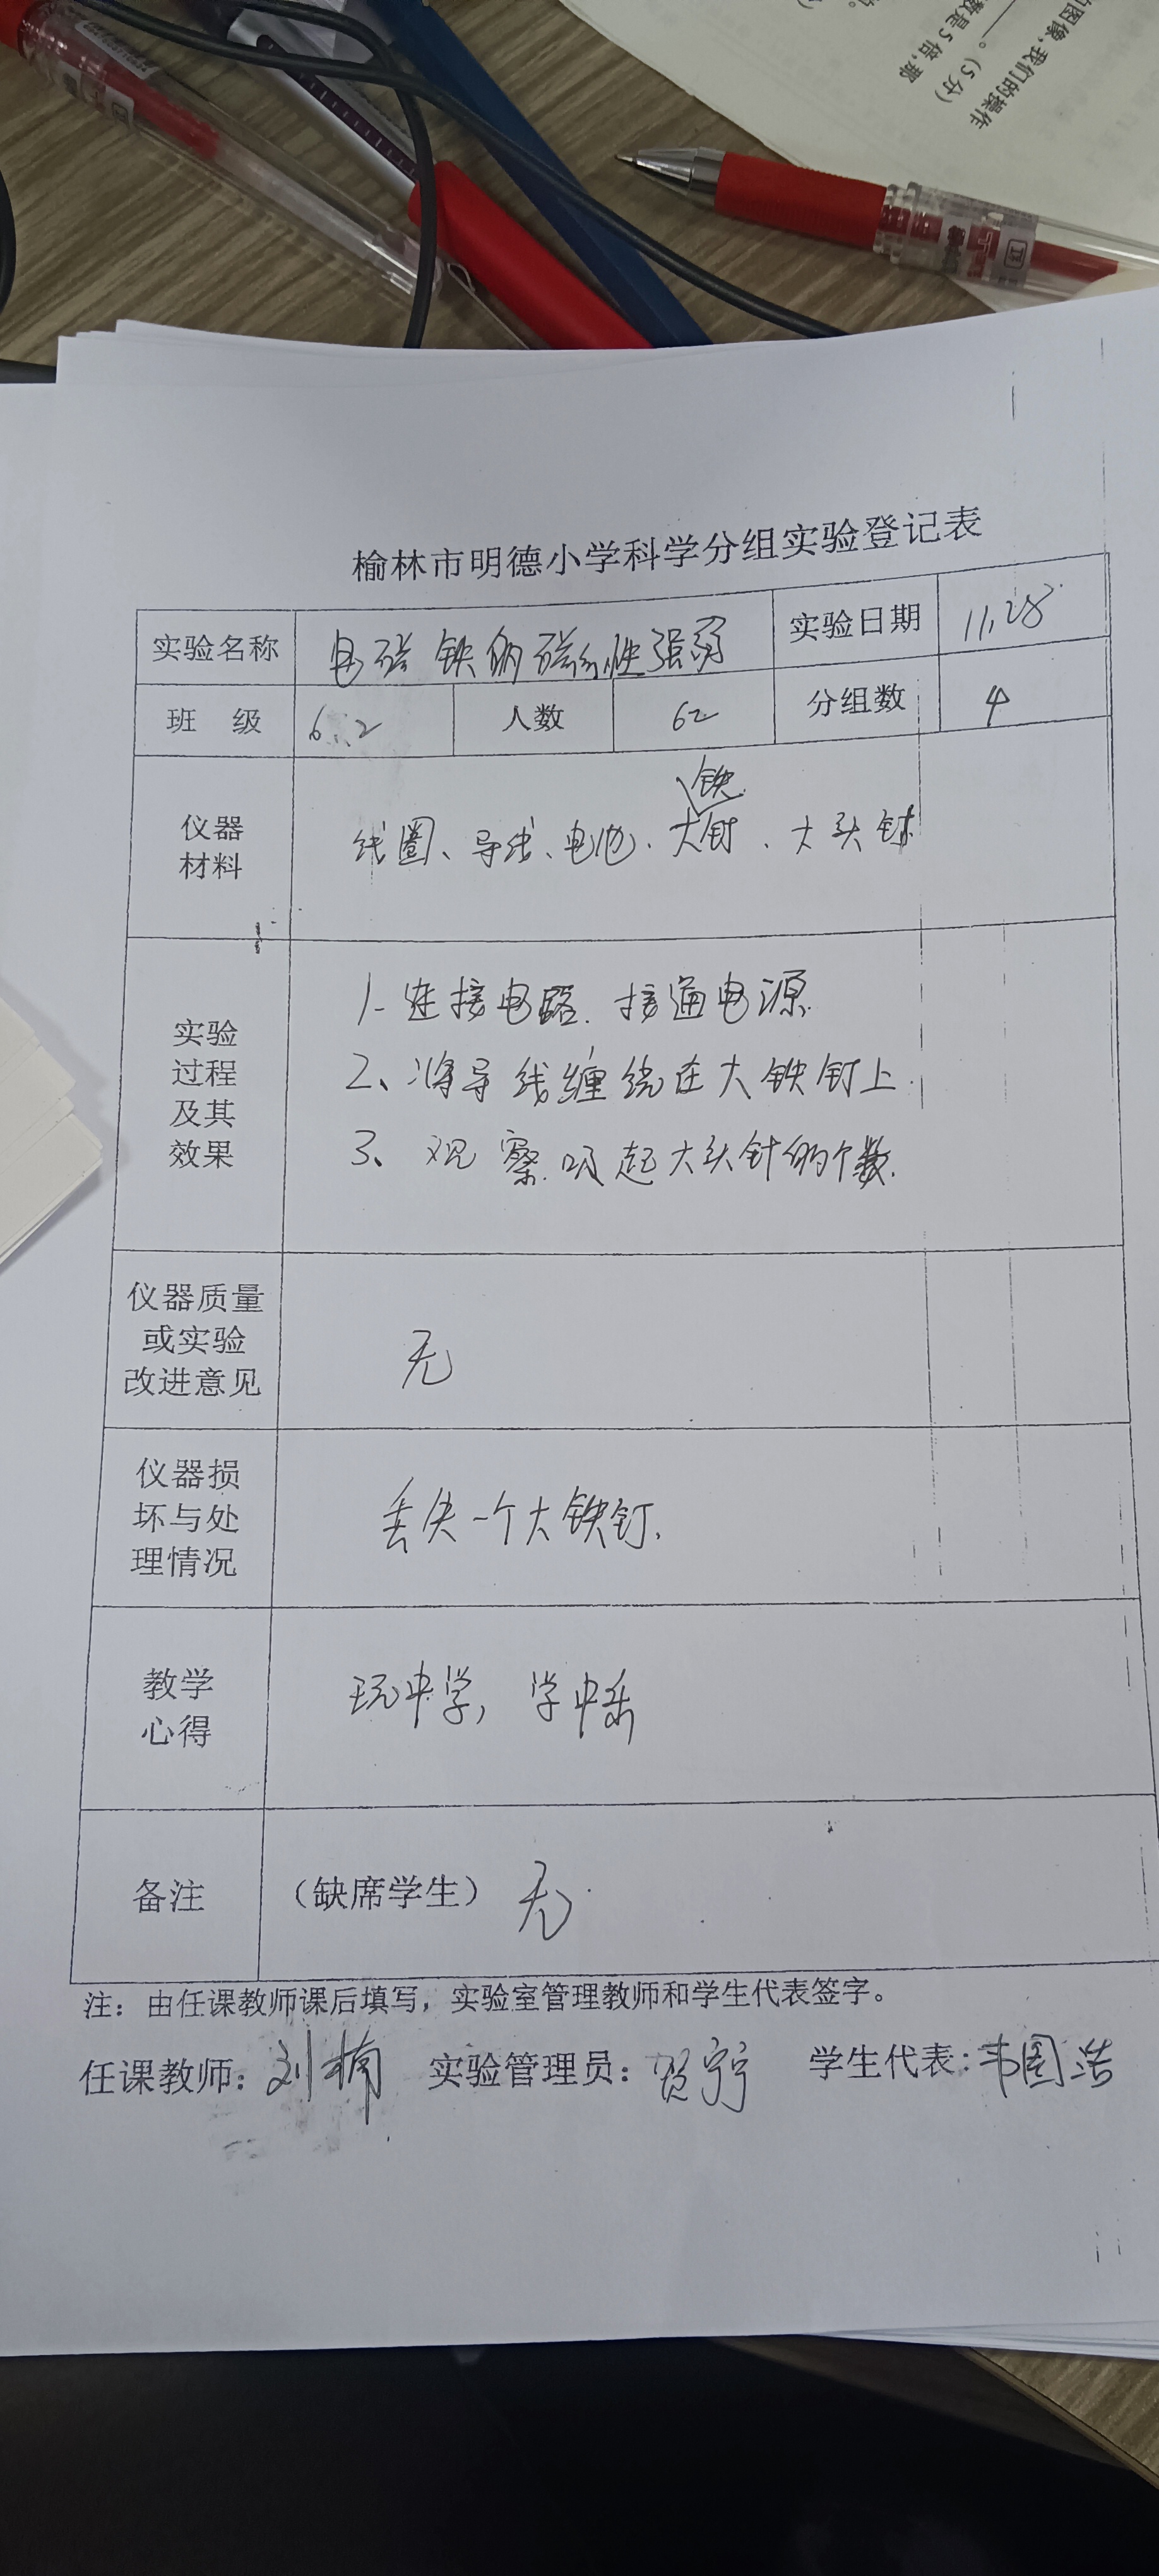 的图像,我们的操作
____。(5分)
数是5倍,那
榆林市明德小学科学分组实验登记表
实验名称 电磁铁的磁性强弱 实验日期 11.28
班 级 6.2 人数 62 分组数 4
仪器
材料
线圈、导线、电池、大铁钉、大头针
实验
过程
及其
效果
1-连接电路.接通电源.
2、将导线缠绕在大铁钉上.
3、观察吸起大头针的个数.
仪器质量
或实验
改进意见
无
仪器损
坏与处
理情况
丢失一个大铁钉.
教学
心得
玩中学,学中乐
备注 (缺席学生) 无
注:由任课教师课后填写,实验室管理教师和学生代表签字。
任课教师:刘楠 实验管理员:贺宁宁 学生代表:韦图浩